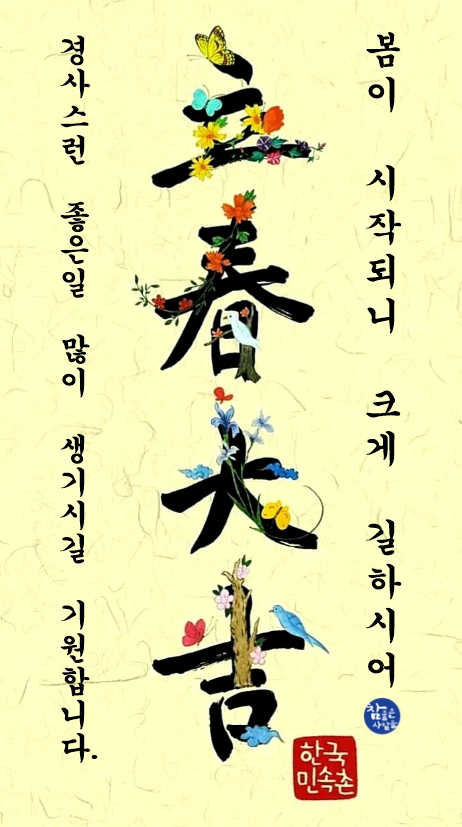 봄이 시작되니 크게 길하시어
立春大吉
경사스런 좋은일 많이 생기시길 기원합니다.
참좋은
사람들
한국
민속촌